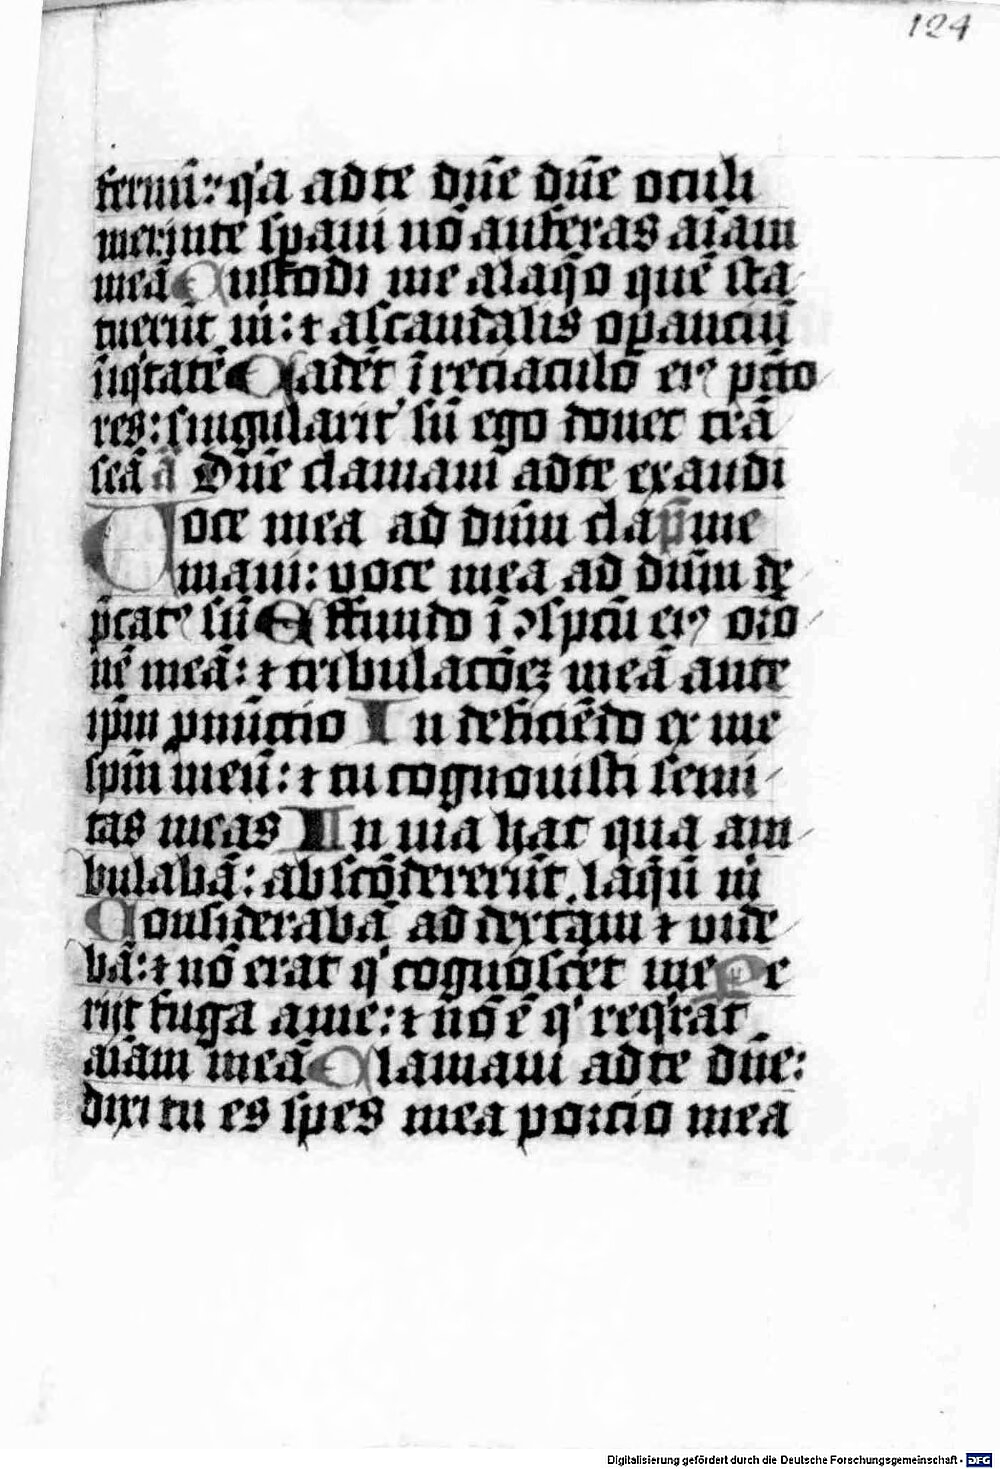 124
fernū: q'a ad te dn̄e dn̄e oculi
mei inte sp̱aui nō auferas aīam
meā Custodi me alaq̄o quē sta
tuerūt m': ⁊ ascandalis oꝑanciū
īiq'tatē Cadēt ī reciaculo eiꝰ pctō
res: singularit' sū ego donec trā
seā ā Dn̄e clamaui ad te exaudi
Uoce mea ad dn̄m cla p̄ me
maui: uoce mea ad dn̄m de
p̄catꝰ sū Effundo ī ꝯspcū eiꝰ orō
nē meā: ⁊ tribulacōeꝫ meā ante
ip̄m ꝓnūctio In deficiēdo ex me
sp̄m meū: ⁊ tu cognouisti semi
tas meas In uia hac qua am
bulabā: abscōdererūt laq̄ū m'
Considerabā ad dextam ⁊ uide
bā: ⁊ nō erat q' cognoscēt me Pe
rijt fuga ame: ⁊ nō ē q' req'rat
aīam meā Clamaui ad te dn̄e:
dixi tu es spes mea porcio mea
Digitalisierung gefördert durch die Deutsche Forschungsgemeinschaft - DFG